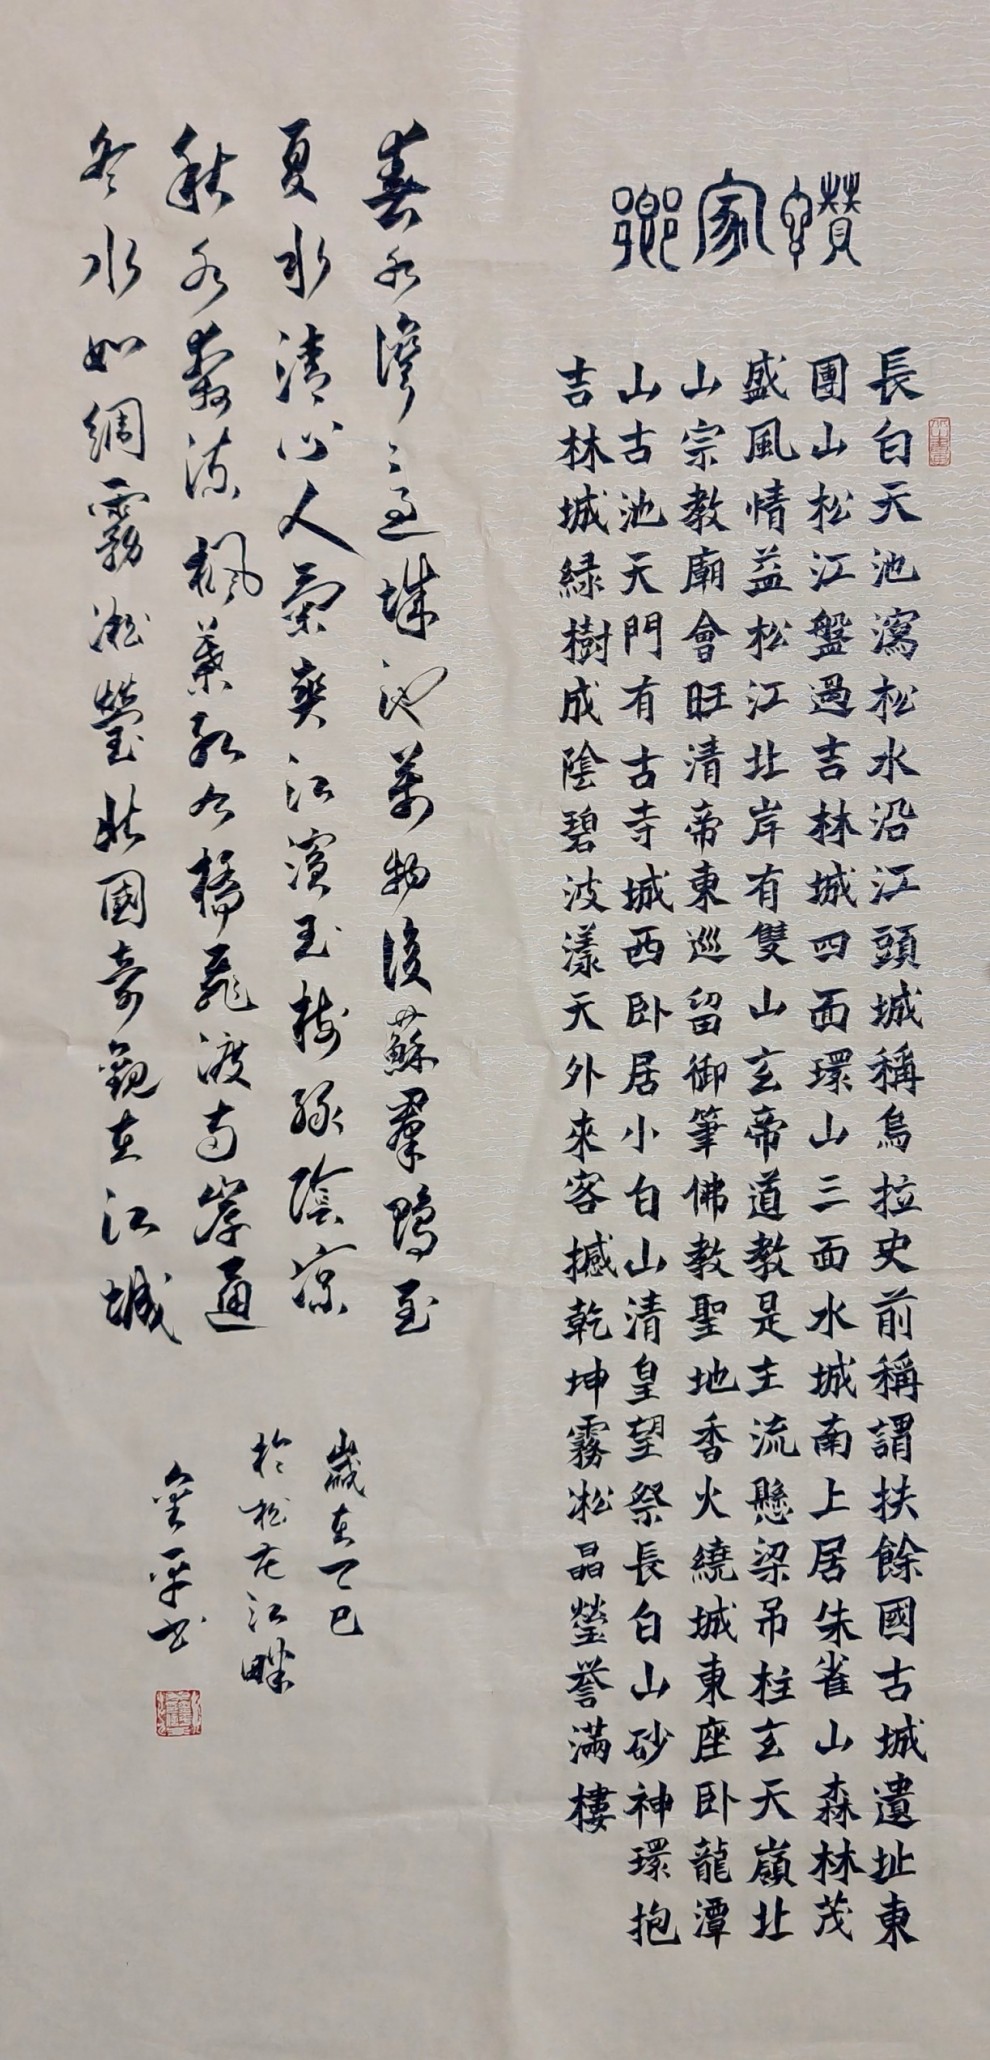 讚家鄉
長白天池瀉松水沿江頭城稱烏拉史前稱謂扶餘國古城遺址東
團山松江盤過吉林城四面環山三面水城南上居朱雀山森林茂
盛風情益松江北岸有雙山玄帝道教是主流懸梁吊柱玄天嶺北
山宗教廟會旺清帝東巡留御筆佛教聖地香火繞城東座卧龍潭
山古池天門有古寺城西卧居小白山清皇望祭長白山砂神環抱
吉林城綠樹成陰碧波漾天外來客撼乾坤霧凇晶瑩譽滿樓
春水潺〻過城池萬物復蘇羣鴨至
夏水清心人氣爽江濱玉樹綠陰凉
秋水霧流楓葉紅九橋飛渡兩岸通
冬水如綢霧凇瑩北國奇觀在江城
歲在乙巳
於松花江畔
金平書